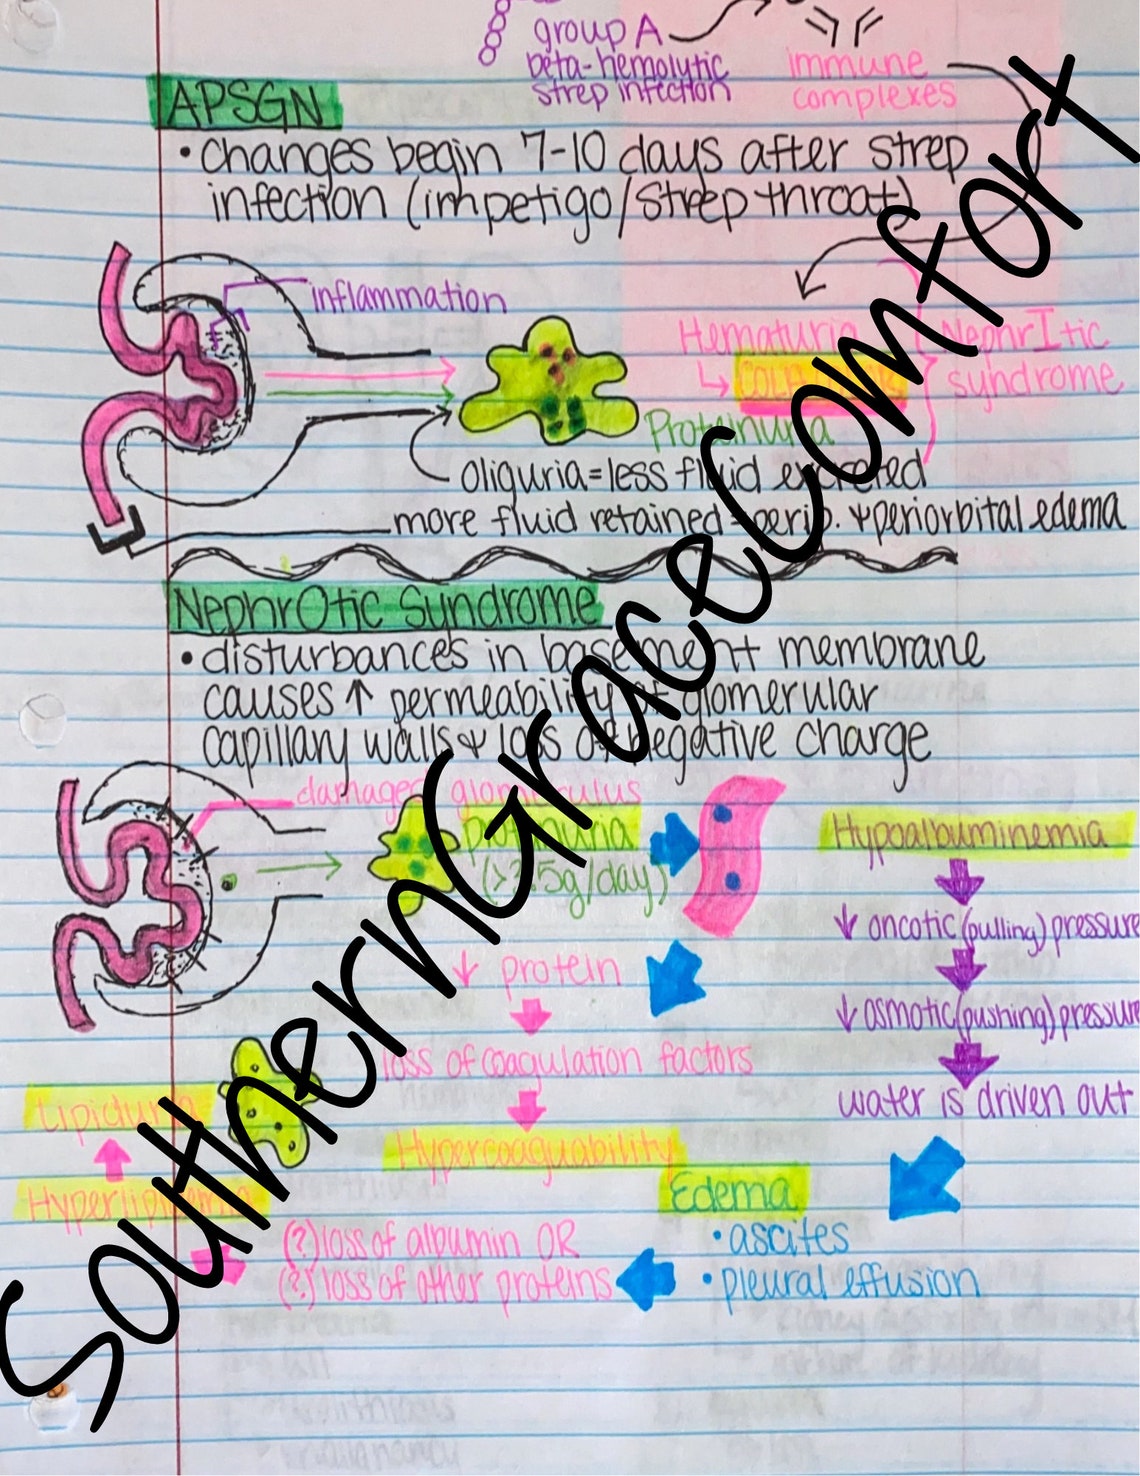 group A
beta-hemolytic
strep infection
immune
complexes
APSGN
• changes begin 7-10 days after strep
infection (impetigo/strep throat)
inflammation
Hematuria
NephrItic
syndrome
Proteinuria
oliguria = less fluid excreted
more fluid retained = perip. & periorbital edema
NephrOtic Syndrome
• disturbances in basement membrane
causes ↑ permeability of glomerular
capillary walls & loss of negative charge
damaged glomerulus
proteinuria
(>3.5g/day)
Hypoalbuminemia
↓ oncotic (pulling) pressure
↓ osmotic (pushing) pressure
water is driven out
↓ protein
loss of coagulation factors
Hypercoaguability
Lipiduria
Hyperlipidemia
Edema
• ascites
• pleural effusion
(?) loss of albumin OR
(?) loss of other proteins
SouthernGraceComfort